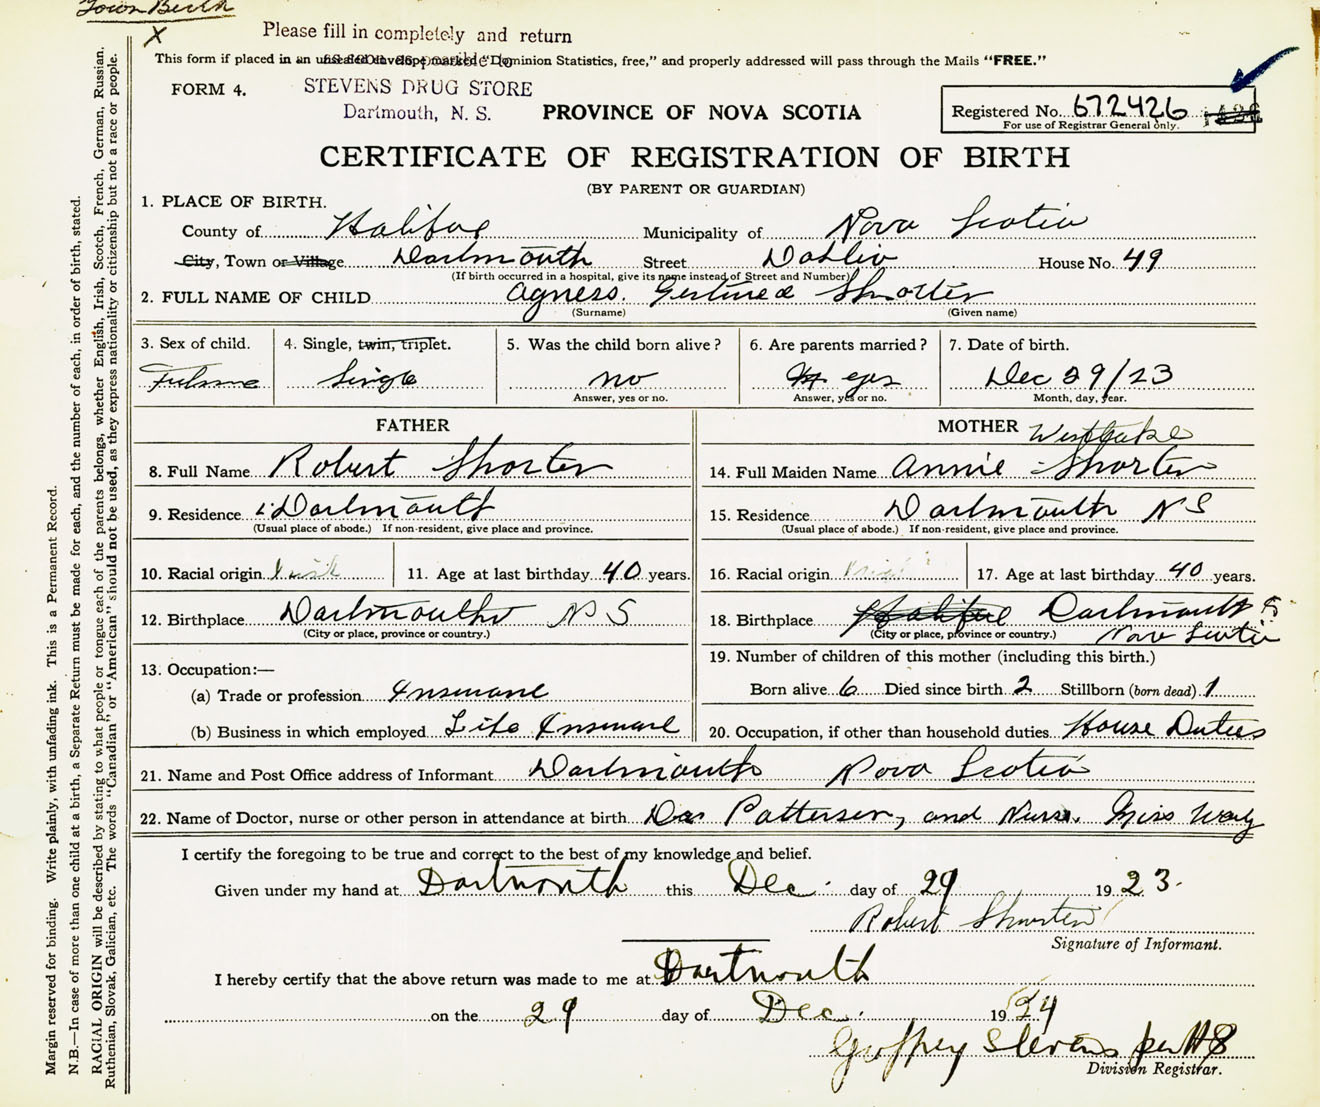 Town Birth
X
Please fill in completely and return
as soon as possible to
This form if placed in an unsealed envelope marked "Dominion Statistics, free," and properly addressed will pass through the Mails "FREE."
FORM 4.
STEVENS DRUG STORE
Dartmouth, N. S.
PROVINCE OF NOVA SCOTIA
Registered No. 672426
For use of Registrar General only.
CERTIFICATE OF REGISTRATION OF BIRTH
(BY PARENT OR GUARDIAN)
1. PLACE OF BIRTH.
County of Halifax Municipality of Nova Scotia
City, Town or Village Dartmouth Street Dahlia House No. 49
(If birth occurred in a hospital, give its name instead of Street and Number)
2. FULL NAME OF CHILD Agness. Gertrued Shorter
(Surname) (Given name)
3. Sex of child. 4. Single, twin, triplet. 5. Was the child born alive? 6. Are parents married? 7. Date of birth.
Single no Dec 29/23
Answer, yes or no. Answer, yes or no. Month, day, year.
FATHER
8. Full Name Robert Shorter
9. Residence Dartmouth
(Usual place of abode.) If non-resident, give place and province.
10. Racial origin 11. Age at last birthday 40 years.
12. Birthplace Dartmouth N S
(City or place, province or country.)
13. Occupation:—
(a) Trade or profession Insurane
(b) Business in which employed Life Insurane
MOTHER Westlake
14. Full Maiden Name Annie Shorter
15. Residence Dartmouth N S
(Usual place of abode.) If non-resident, give place and province.
16. Racial origin 17. Age at last birthday 40 years.
18. Birthplace Halifax Dartmouth
(City or place, province or country.) Nova Scotia
19. Number of children of this mother (including this birth.)
Born alive 6 Died since birth 2 Stillborn (born dead) 1
20. Occupation, if other than household duties House Duties
21. Name and Post Office address of Informant Dartmouth Nova Scotia
22. Name of Doctor, nurse or other person in attendance at birth Patterson, and Nurse. Miss
I certify the foregoing to be true and correct to the best of my knowledge and belief.
Given under my hand at Dartmouth this Dec. day of 29 1923.
Robert Shorter
Signature of Informant.
I hereby certify that the above return was made to me at Dartmouth
on the 29 day of Dec. 1924
Geoffrey Stevens per HS
Division Registrar.
Margin reserved for binding. Write plainly, with unfading ink. This is a Permanent Record.
N.B.—In case of more than one child at a birth, a Separate Return must be made for each, and the number of each, in order of birth, stated.
RACIAL ORIGIN will be described by stating to what people or tongue each of the parents belongs, whether English, Irish, Scotch, French, German, Russian.
Ruthenian, Slovak, Galician, etc. The words "Canadian" or "American" should not be used, as they express nationality or citizenship but not a race or people.